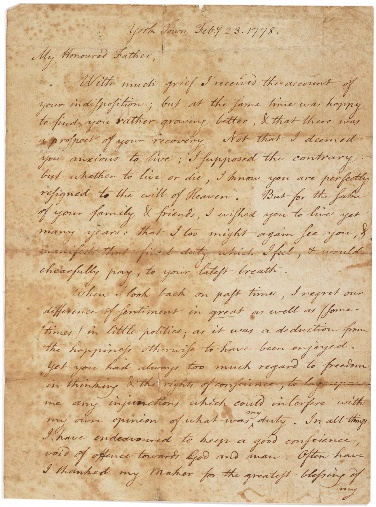 York Town Feby 23. 1778.
My Honoured Father,
With much grief I received the account of
your indisposition; but at the same time was happy
to find you rather growing better, & that there was
a prospect of your recovery. Not that I deemed
you anxious to live; I supposed the contrary:
but whether to live or die, I know you are perfectly
resigned to the will of Heaven. But for the sake
of your family & friends, I wished you to live yet
many years: that I too might again see you, &
manifest that duty which I feel, & would
chearfully pay, to your latest breath.
When I look back on past times, I regret our
difference of sentiment in great as well as (some-
times) in little politics; as it was a deduction from
the happiness otherwise to have been enjoyed.
Yet you had always too much regard to freedom
in thinking & the rights of conscience, to lay upon
me any injunctions which could interfere with
my own opinion of what was my duty. In all things
I have endeavoured to keep a good conscience,
void of offence towards God and man. Often have
I thanked my Maker for the greatest blessing of
my